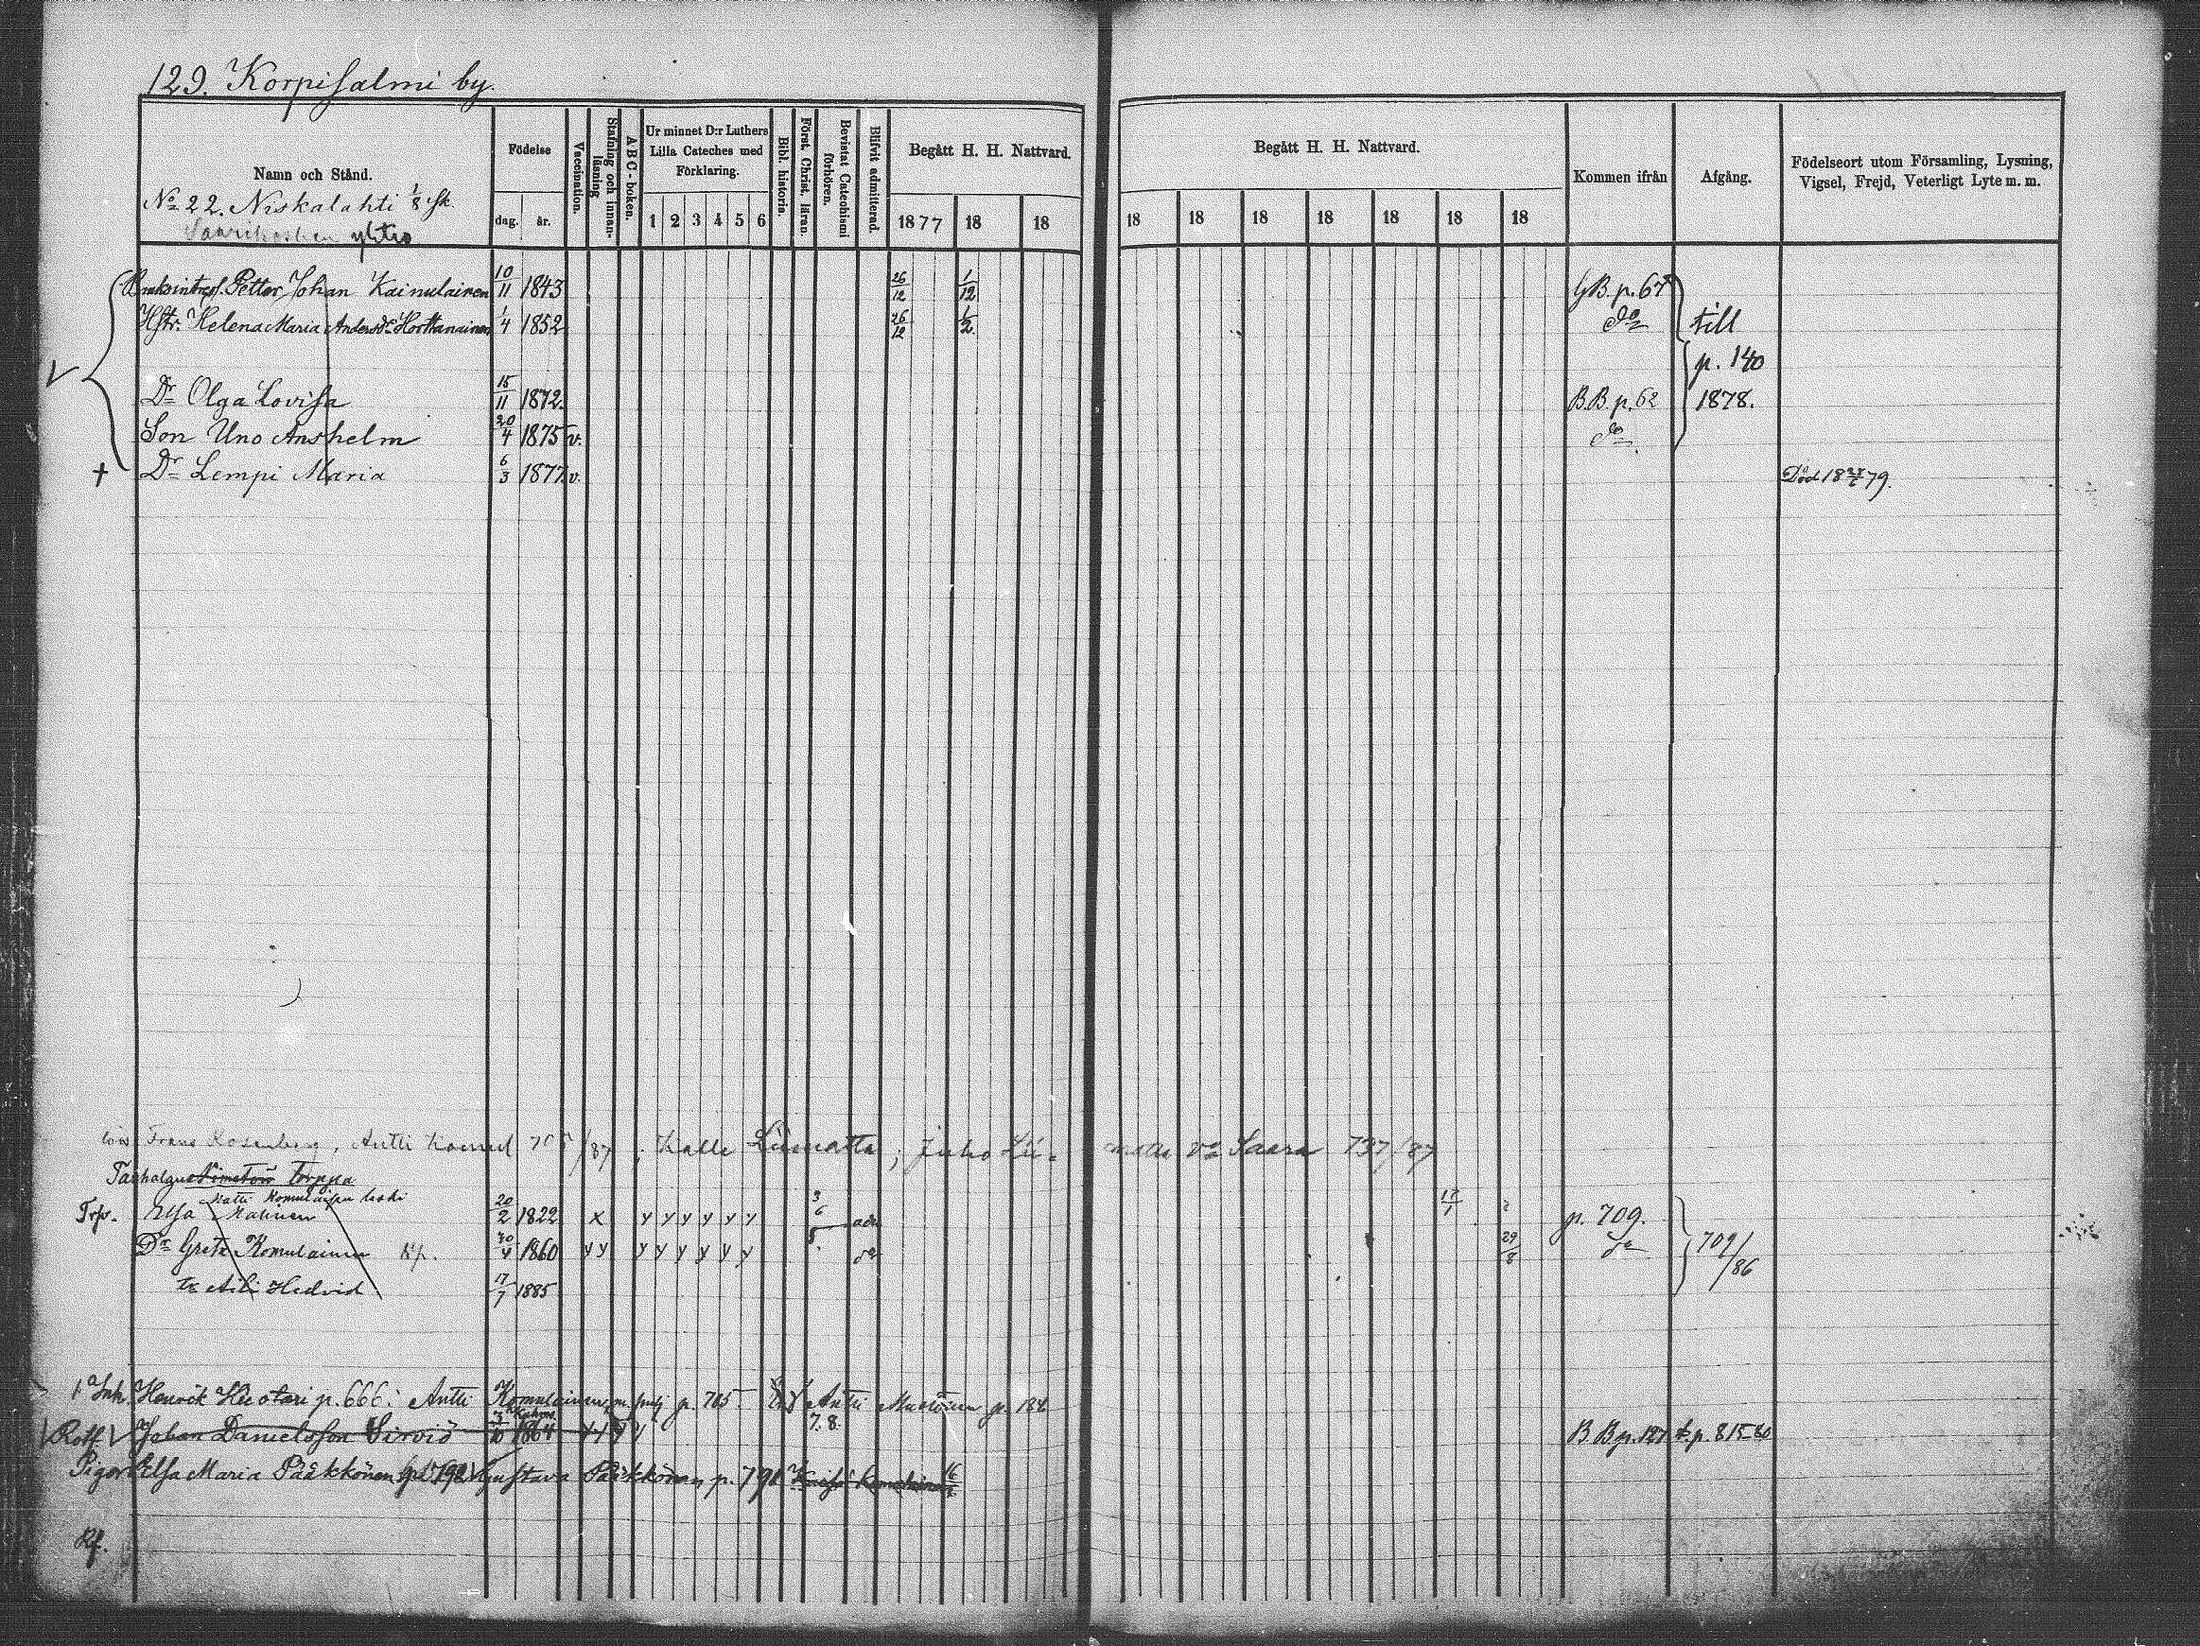 129. Korpisalmi by.
Namn och Stånd.
No 22. Niskalahti 1/8 sk.
yhtiö
Födelse
dag. år.
Vaccination.
Stafning och innan-läsning
A B C-boken.
Ur minnet D:r Luthers Lilla Cateches med Förklaring.
1 2 3 4 5 6
Bibl. historia.
Först. Christ. läran.
Bevistat Catechismi förhören.
Blifvit admitterad.
Begått H. H. Nattvard.
1877 18 18
Begått H. H. Nattvard.
18 18 18 18 18 18 18
Kommen ifrån
Afgång.
Födelseort utom Församling, Lysning, Vigsel, Frejd, Veterligt Lyte m. m.
Petter Johan Kainulainen 10/11 1843 26/12 1/12 GB. p. 67
Hstr. Helena Maria Andersdr Horttanainen 1/4 1852 26/12 1/2 do till
p. 140
Dr Olga Lovisa 15/11 1872. B.B. p. 62 1878.
Son Uno Anshelm 20/4 1875 v. do
† Dr Lempi Maria 6/3 1877 v. Död 18 79.
Frans Rosenberg, Antti 705/87 ; Kalle Liimatta ; Juho Lii- matta Saara 737/87
Torppa
Matti Komulaisen leski
Trp. Elsa Malinen 20/2 1822 x y y y y y y 3/6 adm 17/1 p. 709.
Dr Greta Komulainen 30/4 1860 y y y y y y y y do 29/8 do 709/86
tr Aili Hedvid 17/7 1885
Inh. Henrik p. 666: Antti Komulainen m. p. 705 Antti p. 184
7. 8.
Rotf. Johan Danielsson Sirviö 1864 B B p. 127 t. p. 815 80
Pigor Elsa Maria Pääkkönen Gustava Pääkkönen, p. 791
Rf.